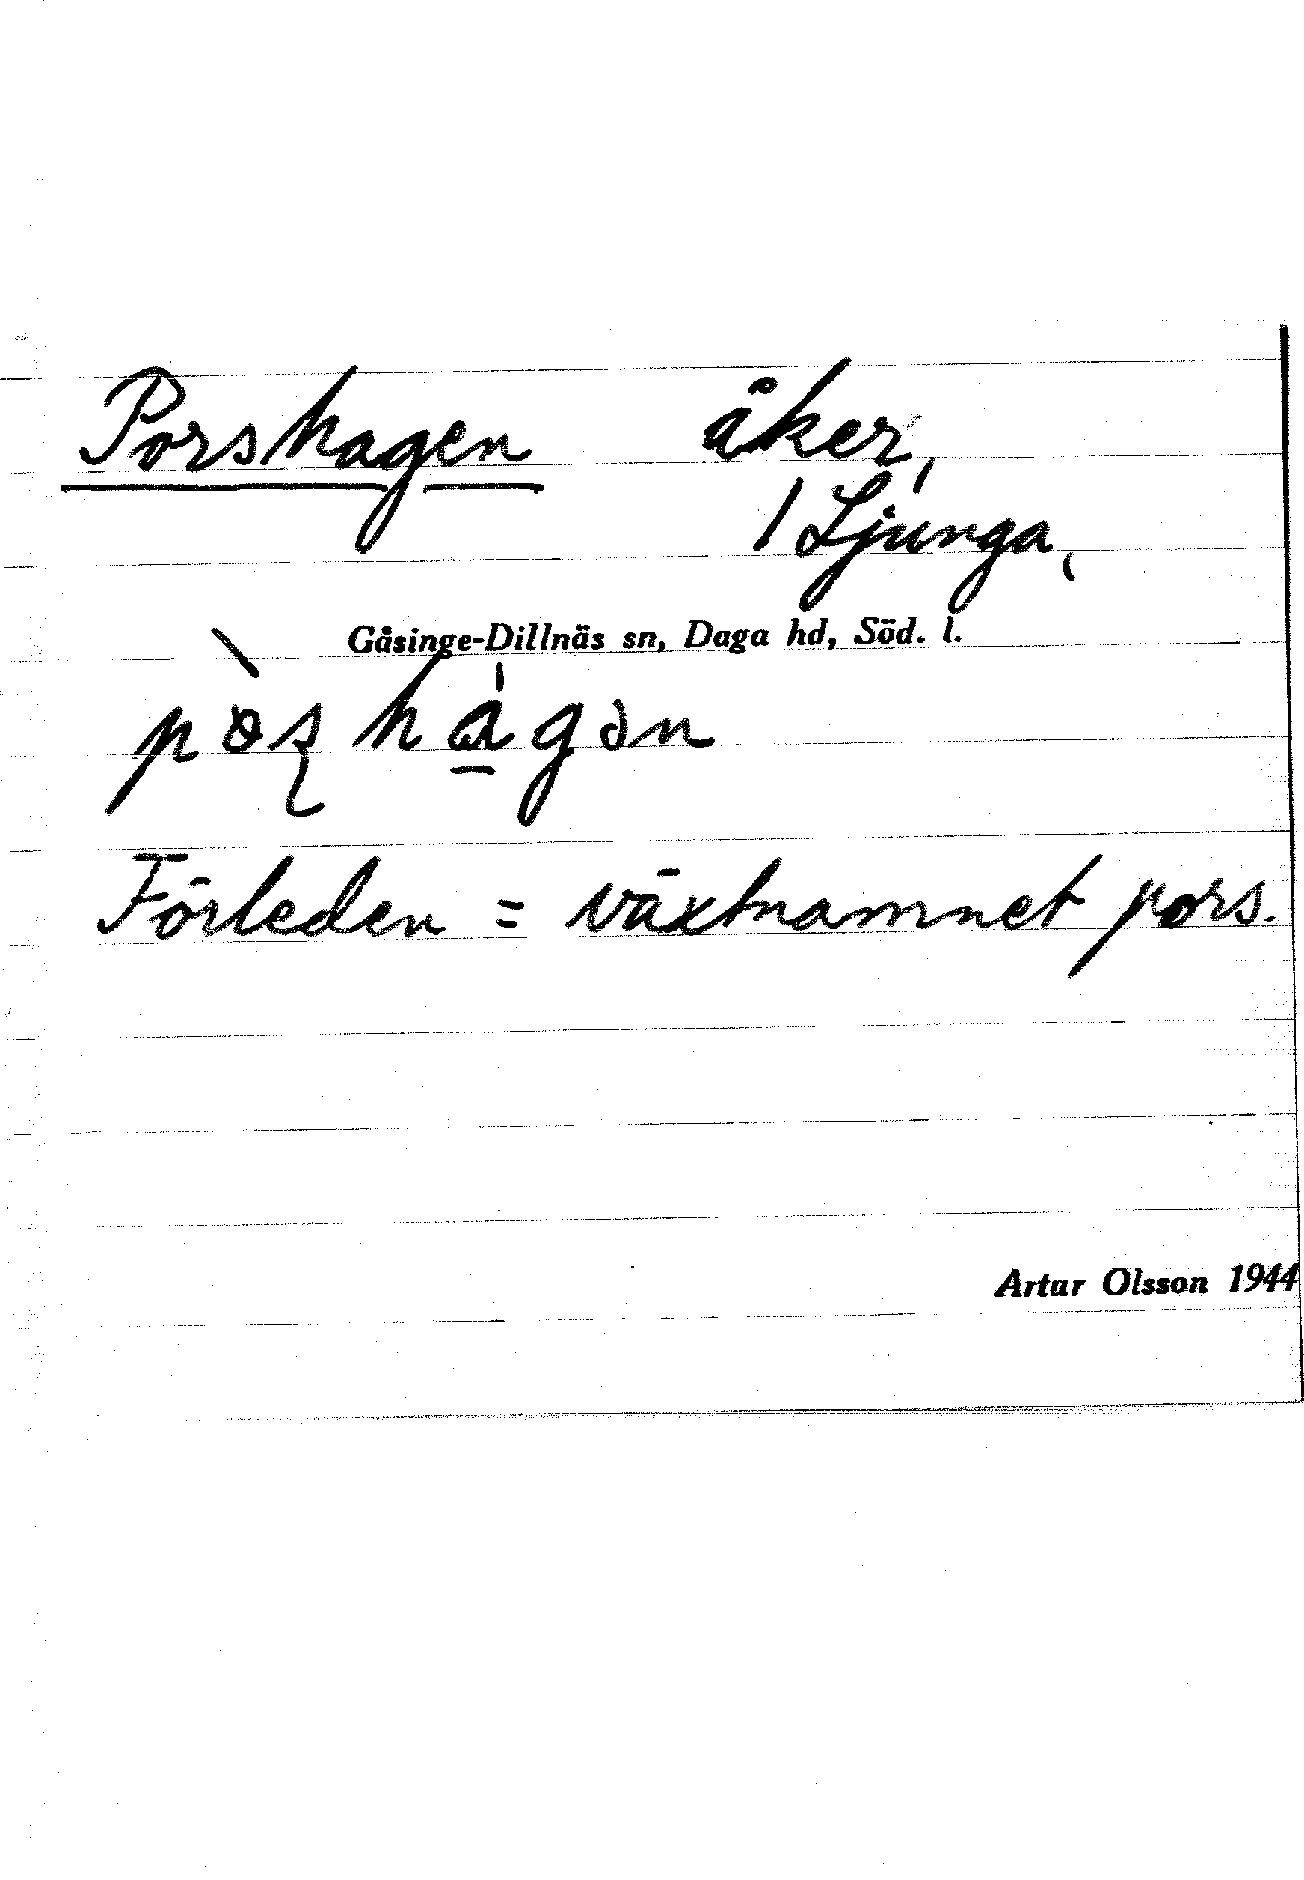 Porshagen åker,
/ Ljunga,
Gåsinge-Dillnäs sn, Daga hd, Söd. l.
pòʂhágən
Förleden = växtnamnet pors.
Artur Olsson 1944